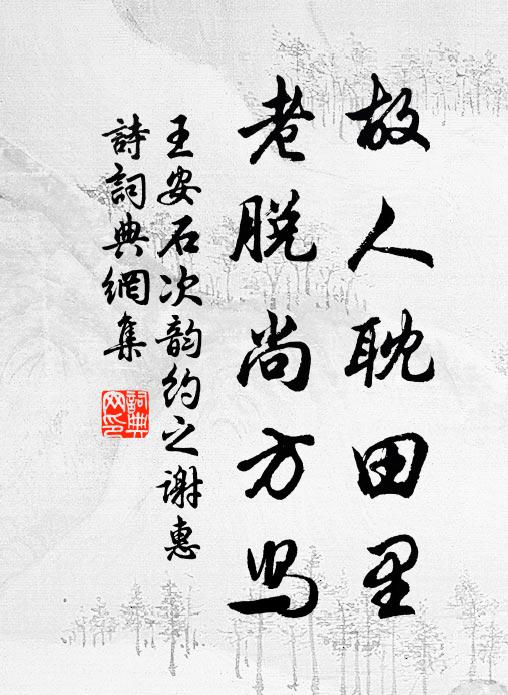 故人耽田里
老脫尚方舄
王安石次韵約之謝惠
詩詞典網集
詞典
网印